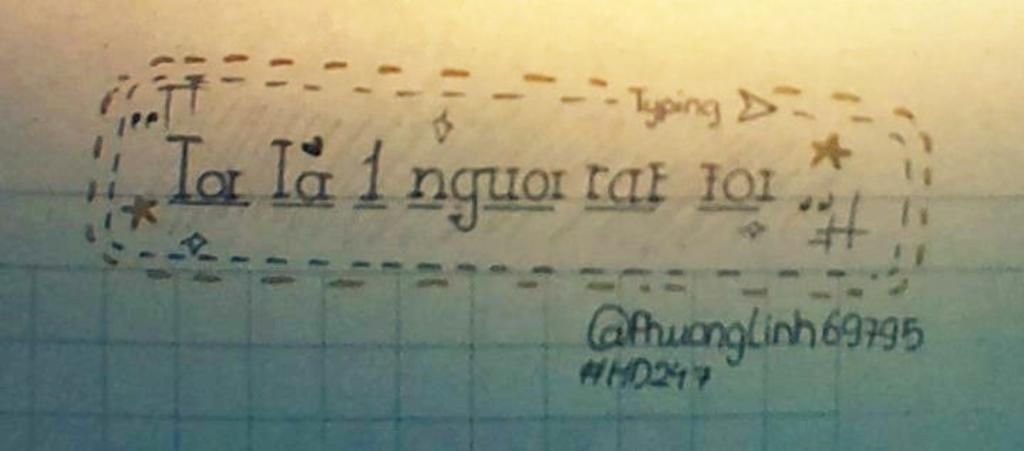 Typing
Toi là 1 nguoi rat toi
@Phuonglinh69795
#HD247